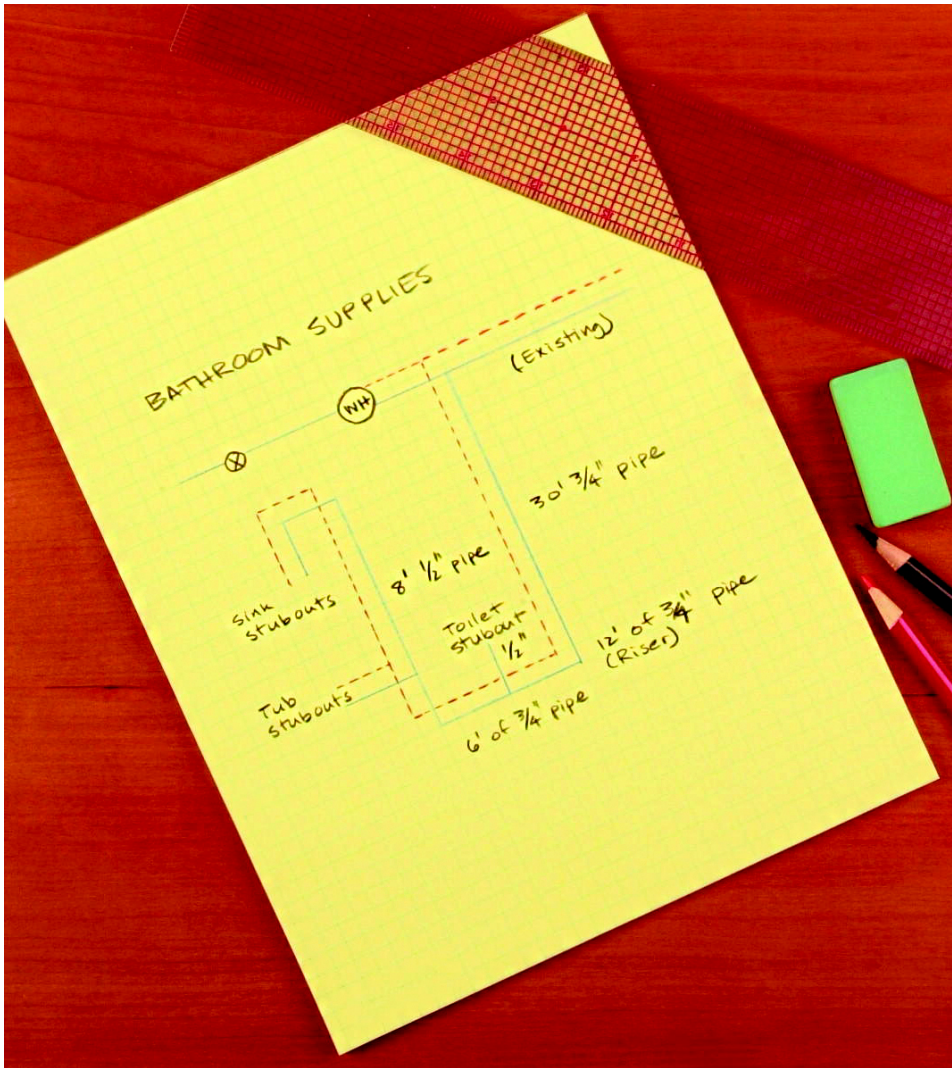 BATHROOM SUPPLIES
(Existing)
WH
X
30' 3/4" pipe
8' 1/2" pipe
Sink
stubouts
Toilet
stubout
1/2"
12' of 3/4" pipe
(Riser)
Tub
stubouts
6' of 3/4" pipe